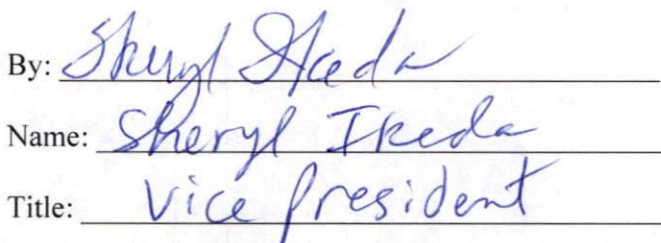 By: Sheryl Ikeda
Name: Sheryl Ikeda
Title: Vice President